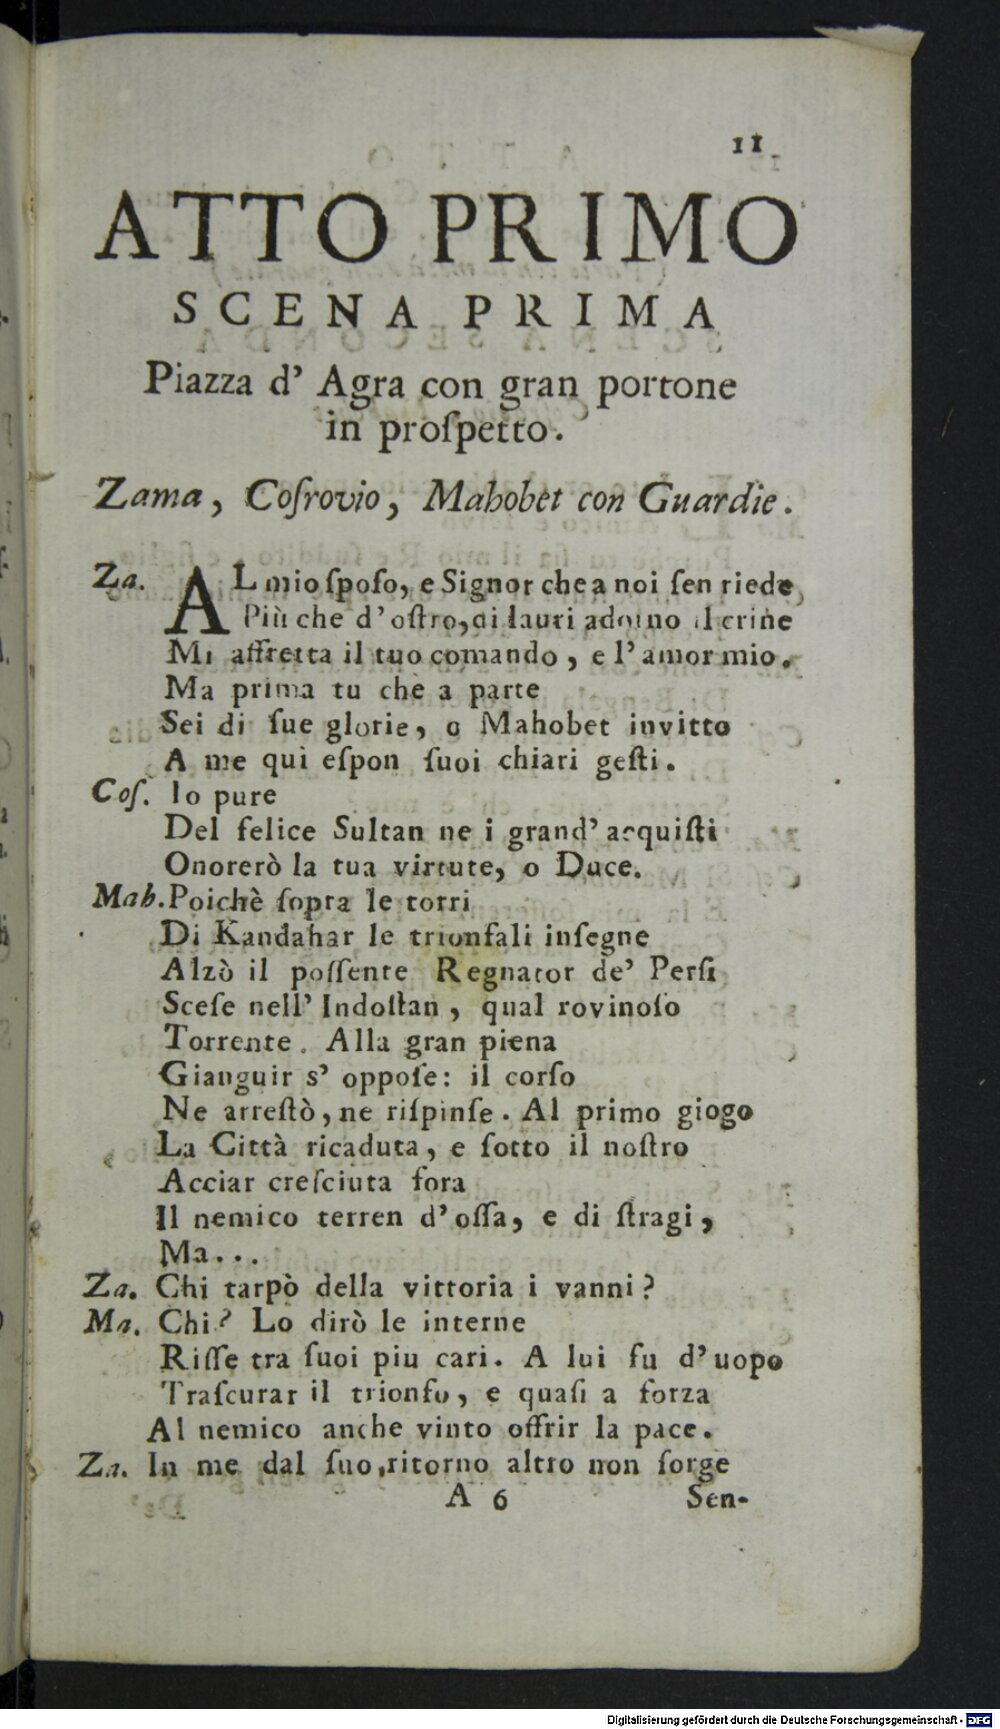 11
ATTO PRIMO
SCENA PRIMA
Piazza d' Agra con gran portone
in proſpetto.
Zama, Coſrovio, Mahobet con Guardie.
Za. AL mio ſpoſo, e Signor che a noi ſen riede,
Più che d'oſtro, di lauri adorno il crine
Mi affretta il tuo comando, e l'amor mio.
Ma prima tu che a parte
Sei di ſue glorie, o Mahobet invitto
A me qui eſpon ſuoi chiari geſti.
Coſ. Io pure
Del felice Sultan ne i grand' acquiſti
Onorerò la tua virtute, o Duce.
Mah. Poichè ſopra le torri
Di Kandahar le trionfali inſegne
Alzò il poſſente Regnator de' Perſi
Sceſe nell' Indoſtan, qual rovinoſo
Torrente. Alla gran piena
Gianguir s' oppoſe: il corſo
Ne arreſtò, ne riſpinſe. Al primo giogo
La Città ricaduta, e ſotto il noſtro
Acciar creſciuta fora
Il nemico terren d'oſſa, e di ſtragi,
Ma...
Za. Chi tarpò della vittoria i vanni?
Ma. Chi? Lo dirò le interne
Riſſe tra ſuoi piu cari. A lui fu d'uopo
Traſcurar il trionfo, e quaſi a forza
Al nemico anche vinto offrir la pace.
Za. In me dal ſuo ritorno altro non ſorge
A 6 Sen-
Digitalisierung gefördert durch die Deutsche Forschungsgemeinschaft - DFG